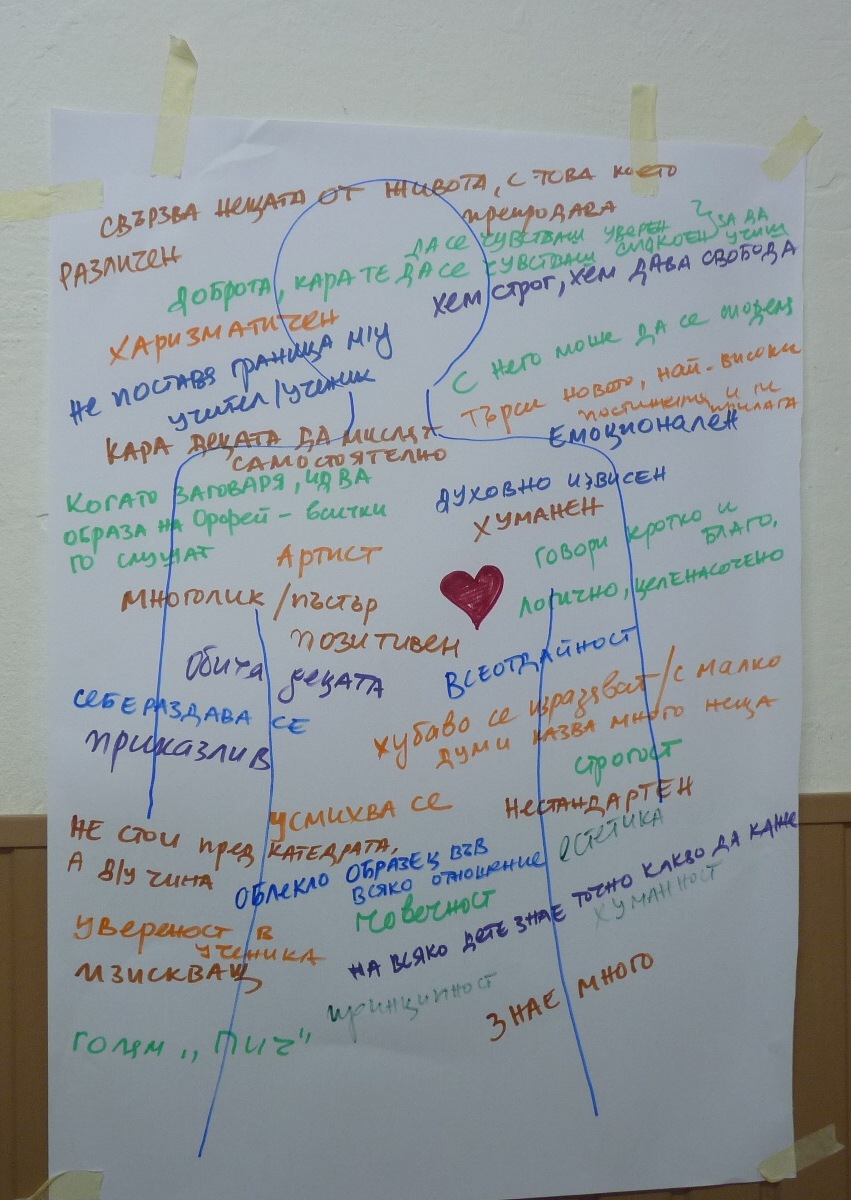 СВЪРЗВА НЕЩАТА ОТ ЖИВОТА, С ТОВА КОЕТО
преподава
РАЗЛИЧЕН
ДА СЕ ЧУВСТВАШ УВЕРЕН
ЗА ДА
ДОБРОТА, КАРА ТЕ ДА СЕ ЧУВСТВАШ СПОКОЕН
УЧИШ
ХЕМ СТРОГ, ХЕМ ДАВА СВОБОДА
ХАРИЗМАТИЧЕН
НЕ ПОСТАВЯ ГРАНИЦА М/У
УЧИТЕЛ/УЧЕНИК
С НЕГО МОЖЕ ДА СЕ СПОДЕЛЯ
ТЪРСИ НОВОТО, НАЙ-ВИСОКИ
ПОСТИЖЕНИЯ И ГИ
ПРИЛАГА
КАРА ДЕЦАТА ДА МИСЛЯТ
САМОСТОЯТЕЛНО
ЕМОЦИОНАЛЕН
КОГАТО ЗАГОВАРЯ, ИДВА
ОБРАЗА НА Орфей – всички
ГО СЛУШАТ
ДУХОВНО ИЗВИСЕН
ХУМАНЕН
АРТИСТ
ГОВОРИ КРОТКО И
БЛАГО,
ЛОГИЧНО, ЦЕЛЕНАСОЧЕНО
МНОГОЛИК / ПЪСТЪР
ПОЗИТИВЕН
Обича децата
ВСЕОТДАЙНОСТ
СЕБЕРАЗДАВА СЕ
ПРИКАЗЛИВ
хубаво се изразяват / с малко
думи казва много неща
СТРОГОСТ
УСМИХВА СЕ
НЕСТАНДАРТЕН
НЕ СТОИ ПРЕД КАТЕДРАТА,
А В/У ЧИНА
ЕСТЕТИКА
ОБЛЕКЛО ОБРАЗЕЦ ВЪВ
ВСЯКО ОТНОШЕНИЕ
ЧОВЕЧНОСТ
НА ВСЯКО ДЕТЕ ЗНАЕ ТОЧНО КАКВО ДА КАЖЕ
ХУМАННОСТ
УВЕРЕНОСТ В
УЧЕНИКА
ИЗИСКВАЩ
ПРИНЦИПНОСТ
ЗНАЕ МНОГО
ГОЛЯМ „ПИЧ"